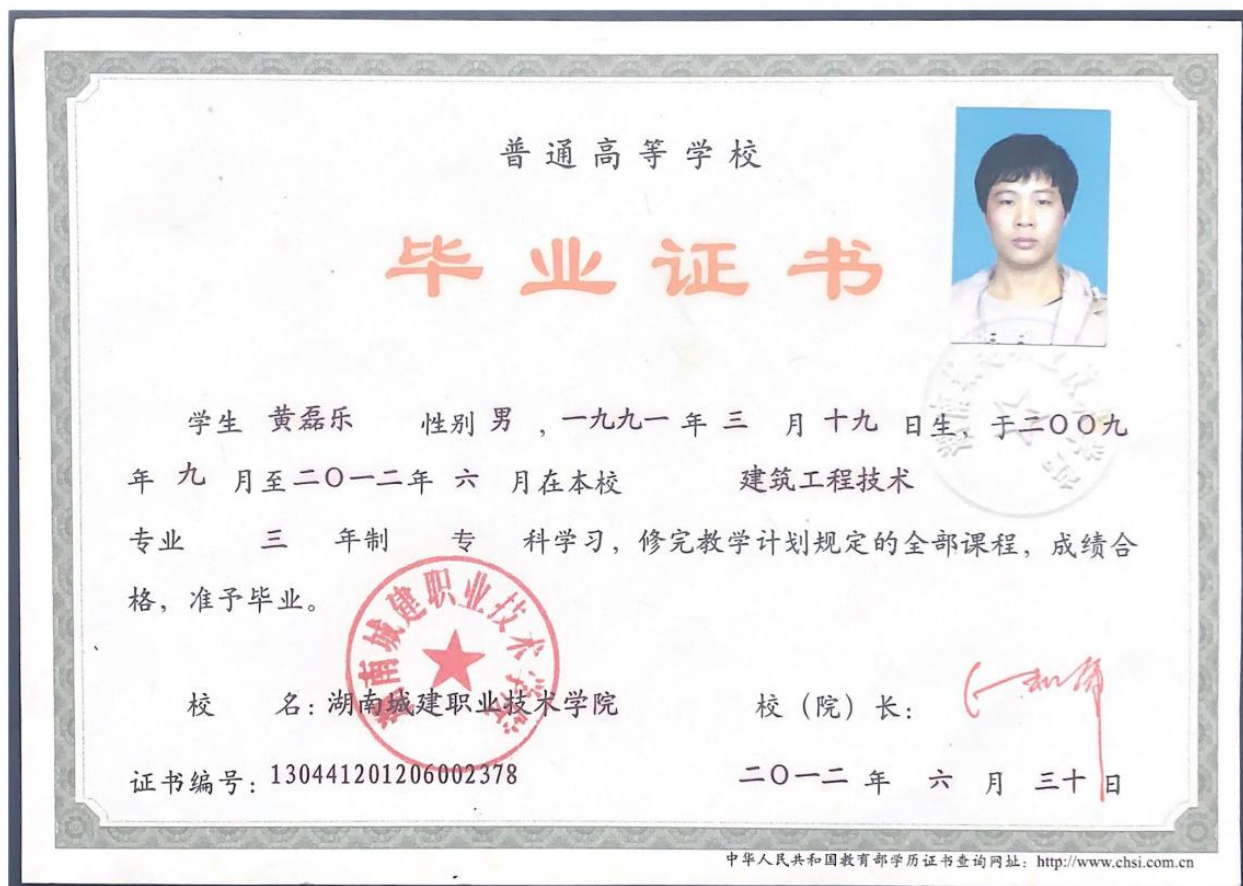 普通高等学校
毕业证书
学生 黄磊乐 性别 男 , 一九九一 年 三 月 十九 日生, 于二〇〇九
年 九 月至二〇一二年 六 月在本校 建筑工程技术
专业 三 年制 专 科学习, 修完教学计划规定的全部课程, 成绩合
格, 准予毕业。
湖南城建职业技术学院
校 名: 湖南城建职业技术学院 校 (院) 长:
证书编号: 130441201206002378 二〇一二 年 六 月 三十 日
中华人民共和国教育部学历证书查询网址: http://www.chsi.com.cn